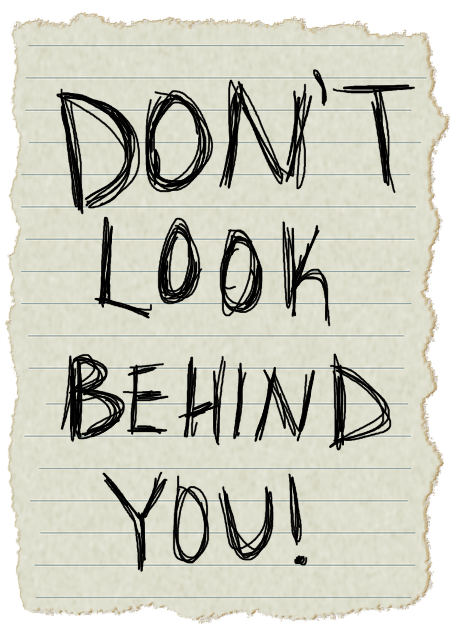 DON'T
LOOK
BEHIND
YOU!